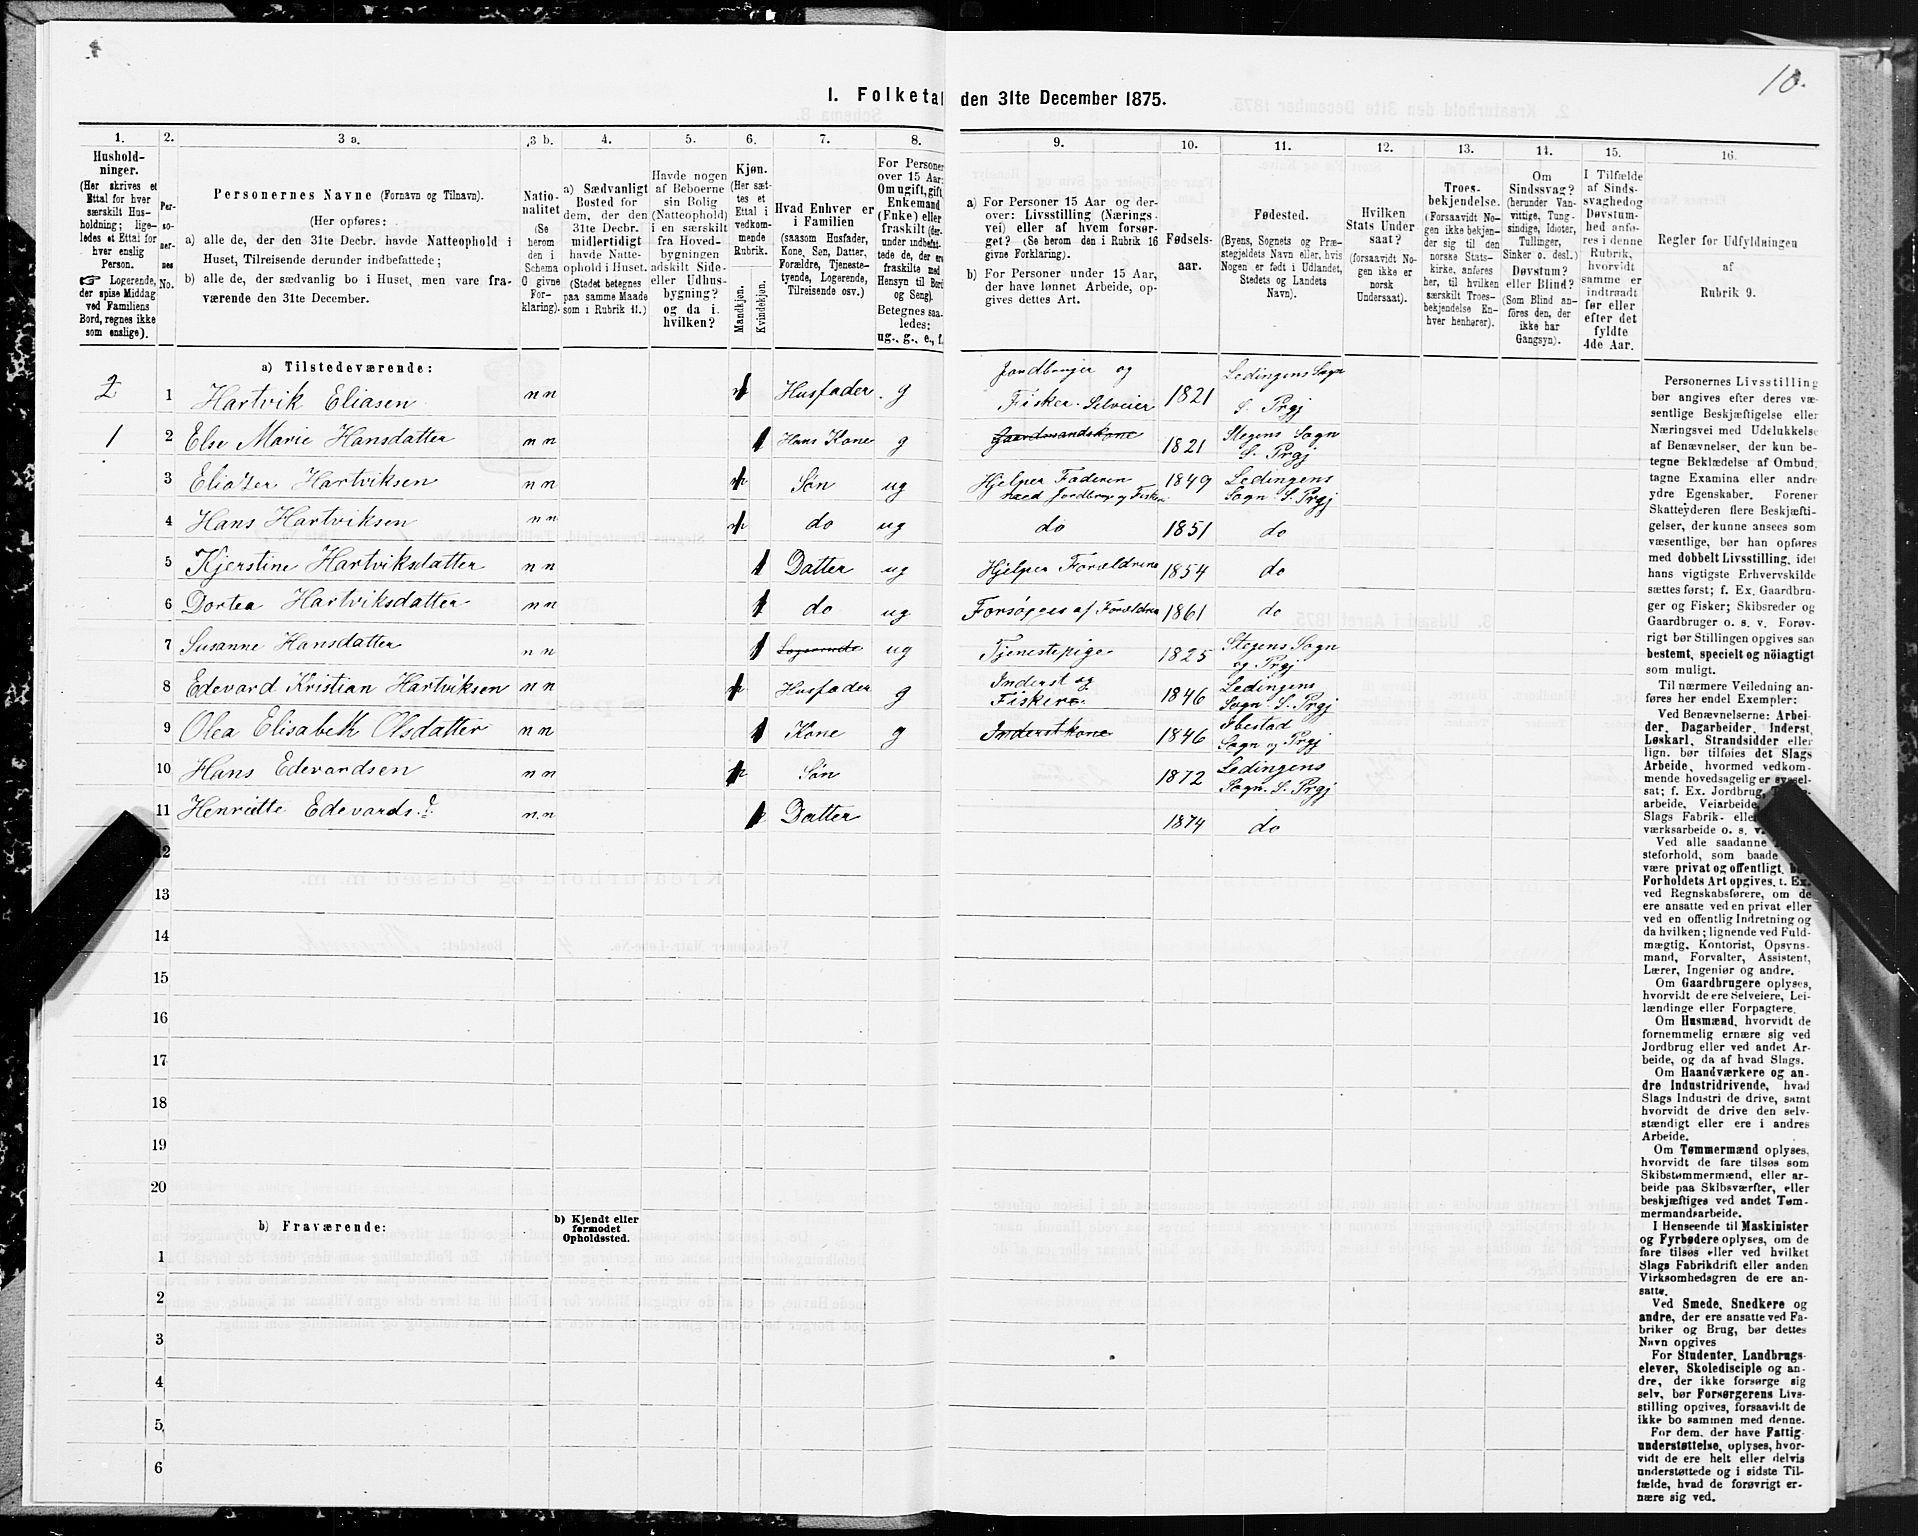 10.
I. Folketal den 31te December 1875.
1.
Hushold-
ninger.
(Her skrives et
Ettal for hver
særskilt Hus-
holdning; lige-
ledes et Ettal for
hver enslig
Person.
☞ Logerende,
der spise Middag
ved Familiens
Bord, regnes ikke
som enslige).
2.
Per-
so-
ner-
nes
No.
3 a.
Personernes Navne (Fornavn og Tilnavn).
(Her opføres:
a) alle de, der den 31te Decbr. havde Natteophold i
Huset, Tilreisende derunder indbefattede;
b) alle de, der sædvanlig bo i Huset, men vare fra-
værende den 31te December.
3 b.
Natio-
nalitet
(Se
herom
den i
Schema
O givne
For-
klaring).
4.
a) Sædvanligt
Bosted for
dem, der den
31te Decbr.
midlertidigt
havde Natte-
ophold i Huset.
(Stedet betegnes
paa samme Maade
som i Rubrik 11.)
5.
Havde nogen
af Beboerne
sin Bolig
(Natteophold)
i en særskilt
fra Hoved-
bygningen
adskilt Side-
eller Udhus-
bygning?
og da i
hvilken?
6.
Kjøn.
(Her sæt-
tes et
Ettal i
vedkom-
mende
Rubrik.
Mandkjøn.
Kvindekjøn.
7.
Hvad Enhver er
i Familien
(saasom Husfader,
Kone, Søn, Datter,
Forældre, Tjeneste-
tyende, Logerende,
Tilreisende osv.)
8.
For Personer
over 15 Aar:
Om ugift, gift,
Enkemand
(Enke) eller
fraskilt (der-
under indbefat-
tede de, der ere
fraskilte med
Hensyn til Bord
og Seng).
Betegnes saa-
ledes:
ug., g., e., f.
9.
a) For Personer 15 Aar og der-
over: Livsstilling (Nærings-
vei) eller af hvem forsør-
get? (Se herom den i Rubrik 16
givne Forklaring).
b) For Personer under 15 Aar,
der have lønnet Arbeide, op-
gives dettes Art.
10.
Fødsels-
aar.
11.
Fødested.
(Byens, Sognets og Præ-
stegjeldets Navn eller, hvis
Nogen er født i Udlandet,
Stedets og Landets
Navn).
12.
Hvilken
Stats Under-
saat?
(forsaavidt No-
gen ikke er
norsk
Undersaat).
13.
Troes-
bekjendelse.
(Forsaavidt No-
gen ikke bekjen-
der sig til den
norske Stats-
kirke, anføres
her, til hvilken
særskilt Troes-
bekjendelse En-
hver henhører).
14.
Om
Sindssvag?
(herunder Van-
vittige, Tung-
sindige, Idioter,
Tullinger,
Sinker o. desl.)
Døvstum?
eller Blind?
(Som Blind an-
føres den, der
ikke har
Gangsyn).
15.
I Tilfælde
af Sinds-
svaghed og
Døvstum-
hed anfø-
res i denne
Rubrik,
hvorvidt
samme er
indtraadt
før eller
efter det
fyldte
4de Aar.
16.
Regler for Udfyldningen
af
Rubrik 9.
a) Tilstedeværende:
2 1 Hartvik Eliasen n n 1 Husfader g Jordbruger og Fisker. Selveier 1821 Lødingens Sogn S. Prgj
1 2 Else Marie Hansdatter n n 1 Hans Kone g Gaardmandskone 1821 Stegens Sogn S. Prgj
3 Eliazer Hartviksen n n 1 Søn ug Hjelper Faderen med Jordbrug og Fisker. 1849 Lødingens Sogn S. Prgj
4 Hans Hartviksen n n 1 do ug do 1851 do
5 Kjerstine Hartviksdatter n n 1 Datter ug Hjelper Forældrene 1854 do
6 Dortea Hartviksdatter n n 1 do ug Forsøges af Forældrene 1861 do
7 Susanne Hansdatter n n 1 Logerende ug Tjenestepige 1825 Stegens Sogn og Prgj
8 Edevard Kristian Hartviksen n n 1 Husfader g Inderst og Fisker 1846 Lødingens Sogn S. Prgj
9 Olea Elisabeth Olsdatter n n 1 Kone g Inderstkone 1846 Ibestad Sogn og Prgj
10 Hans Edevardsen n n 1 Søn 1872 Lødingens Sogn. S. Prgj
11 Henriette Edevards.d n.n 1 Datter 1874 do
12
13
14
15
16
17
18
19
20
b) Fraværende:
b) Kjendt eller
formodet
Opholdssted.
1
2
3
4
5
6
Personernes Livsstilling
bør angives efter deres væ-
sentlige Beskjæftigelse eller
Næringsvei med Udelukkelse
af Benævnelser, der kun be-
tegne Beklædelse af Ombud,
tagne Examina eller andre
ydre Egenskaber. Forener
Skatteyderen flere Beskjæfti-
gelser, der kunne ansees som
væsentlige, bør han opføres
med dobbelt Livsstilling, idet
hans vigtigste Erhvervskilde
sættes først; f. Ex. Gaardbru-
ger og Fisker; Skibsreder og
Gaardbruger o. s. v. Forøv-
rigt bør Stillingen opgives saa
bestemt, specielt og nöiagtigt
som muligt.
Til nærmere Veiledning an-
føres her endel Exempler:
Ved Benævnelserne: Arbei-
der, Dagarbeider, Inderst,
Løskarl, Strandsidder eller
lign. bør tilføies det Slags
Arbeide, hvormed vedkom-
mende hovedsagelig er syssel-
sat; f. Ex. Jordbrug,
arbeide, Veiarbeide,
Slags Fabrik- eller
værksarbeide o. s. v.
Ved alle saadanne
steforhold, som baade
være privat og offentligt,
Forholdets Art opgives, t. Ex.
ved Regnskabsførere, om de
ere ansatte ved en privat eller
ved en offentlig Indretning og
da hvilken; lignende ved Fuld-
mægtig, Kontorist, Opsyns-
mand, Forvalter, Assistent,
Lærer, Ingeniør og andre.
Om Gaardbrugere oplyses,
hvorvidt de ere Selveiere, Lei-
lændinge eller Forpagtere.
Om Husmænd, hvorvidt de
fornemmelig ernære sig ved
Jordbrug eller ved andet Ar-
beide, og da af hvad Slags.
Om Haandværkere og an-
dre Industridrivende, hvad
Slags Industri de drive, samt
hvorvidt de drive den selv-
stændigt eller ere i andres
Arbeide.
Om Tømmermænd oplyses,
hvorvidt de fare tilsøs som
Skibstømmermænd, eller ar-
beide paa Skibsværfter, eller
beskjæftiges ved andet Tøm-
mermandsarbeide.
I Henseende til Maskinister
og Fyrbødere oplyses, om de
fare tilsøs eller ved hvilket
Slags Fabrikdrift eller anden
Virksomhedsgren de ere an-
satte.
Ved Smede, Snedkere og
andre, der ere ansatte ved Fa-
briker og Brug, bør dettes
Navn opgives
For Studenter, Landbrugs-
elever, Skoledisciple og an-
dre, der ikke forsørge sig
selv, bør Forsørgerens Livs-
stilling opgives, forsaavidt de
ikke bo sammen med denne.
For dem, der have Fattig-
understøttelse, oplyses, hvor-
vidt de ere helt eller delvis
understøttede og i sidste Til-
fælde, hvad de forøvrigt er-
nære sig ved.